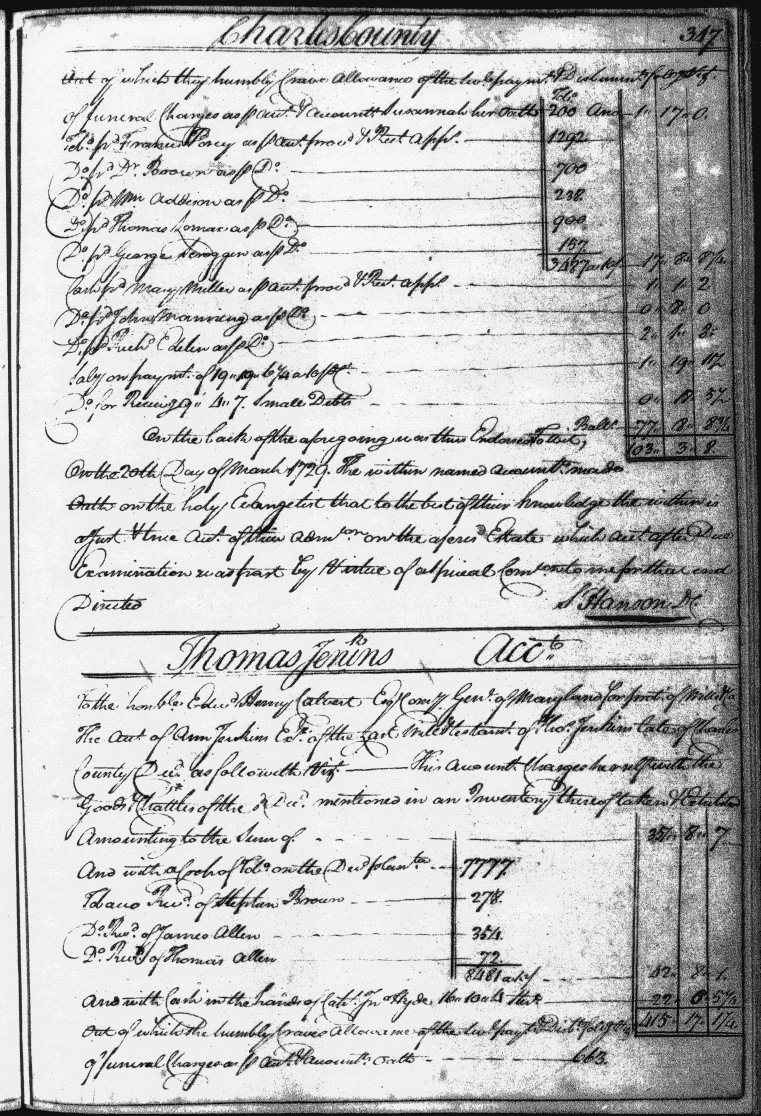 Charles County 347
Out of which they humbly Crave Allowance of the paymts & Disbursmts
Tob.
of funeral Charges as p acct & accountt Susannah her oath 200 And 1 17 0
To do pd Francis as p acct provd & Rect appl. 1292
Do pd Dr. Brown as p Do 700
Do pd Wm Addison as p Do 238
Do pd Thomas Lomax as p Do 900
Do pd George as p Do 157
3487 17 8
Cash pd Mary Miller as p acct provd & Rect appl 1 1 2
Do pd John Manning as p Do 0 8 0
Do pd Richd Edelen as p Do 2 1 2
Saly on paymt of 1 19
Do for Receivg 9 4 7 Small Debts 0 18
Balle 77 18
On the back of the aforegoing was thus Endorsed to wit; 103 3 8
On the 20th Day of March 1729. The within named accountts made
Oath on the holy Evangelist that to the best of their knowledge the within is
a just & true acct of their admon on the aforesd Estate which acct after Due
Examination was past by Virtue of a Special Comn to me for that end
Directed S Hanson DC
Thomas Jenkins Acct
To the honble Edwd Henry Calvert Esqr Comy Genl of Maryland for
The acct of Ann Jenkins Exx of the Last Will & Testamt of Thos Jenkins late of Charles
County Decd as followeth Vizt This accountt Charges herself with the
Goods & Chattles of the sd Decd mentioned in an Inventory thereof taken &
Amounting to the Sum of 351 8 7
And with a Crop of Tobo on the Decd planta 7777
Tobaco Recd of Stephen Brown 278
Do Recd of James Allen 354
Do Recd of Thomas Allen 72
8481 42 8 1
And with Cash in the hands of Capt Jno Hyde 16 10 4 22
415 17
Out of which she humbly Craves Allowance of the paymts
of funeral Charges as p acct & accountts oath 663